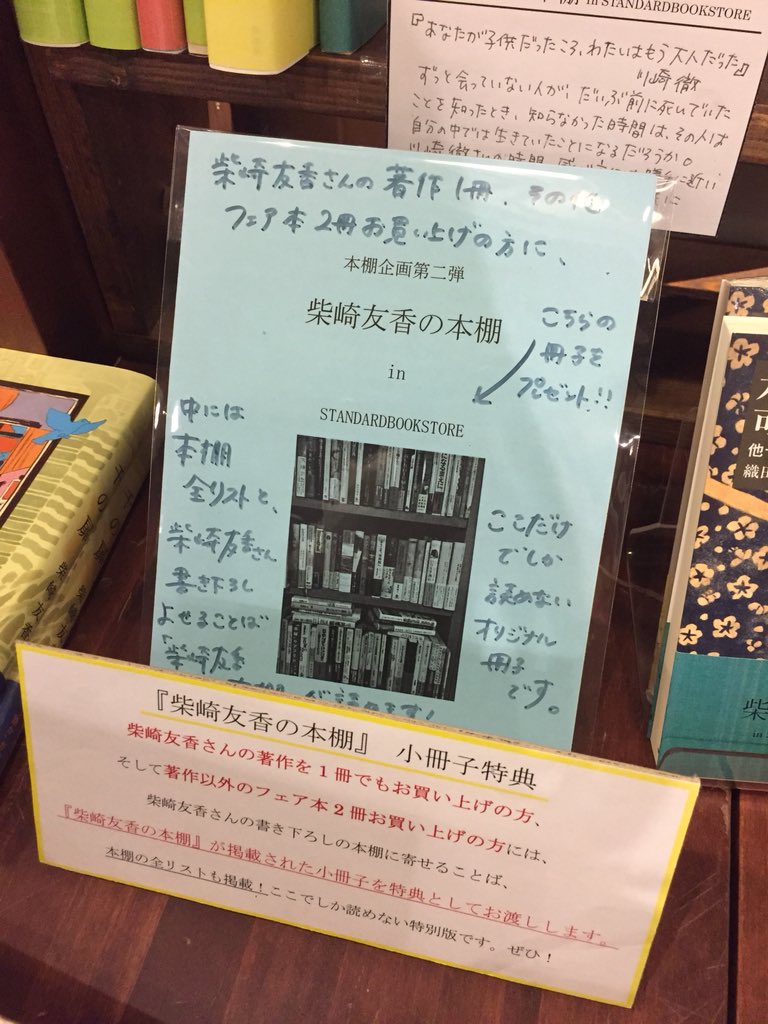 in STANDARDBOOKSTORE
『あなたが子供だったころ、わたしはもう大人だった』
川崎徹
ずっと会っていない人が、だいぶ前に死んでいた
ことを知ったとき、知らなかった時間は、その人は
自分の中では生きていたことになるだろうか。
柴崎友香さんの著作1冊、その他
フェア本2冊お買い上げの方に、
本棚企画第二弾
柴崎友香の本棚
in
STANDARDBOOKSTORE
こちらの
冊子を
プレゼント!!
中には
本棚
全リストと、
柴崎友香さん
書き下ろし
よせることば
「柴崎友香
ここだけ
でしか
読めない
オリジナル
冊子
です。
『柴崎友香の本棚』 小冊子特典
柴崎友香さんの著作を1冊でもお買い上げの方、
そして著作以外のフェア本2冊お買い上げの方には、
柴崎友香さんの書き下ろしの本棚に寄せることば、
『柴崎友香の本棚』が掲載された小冊子を特典としてお渡しします。
本棚の全リストも掲載!ここでしか読めない特別版です。ぜひ!
柴崎友香
他
織田
柴
in